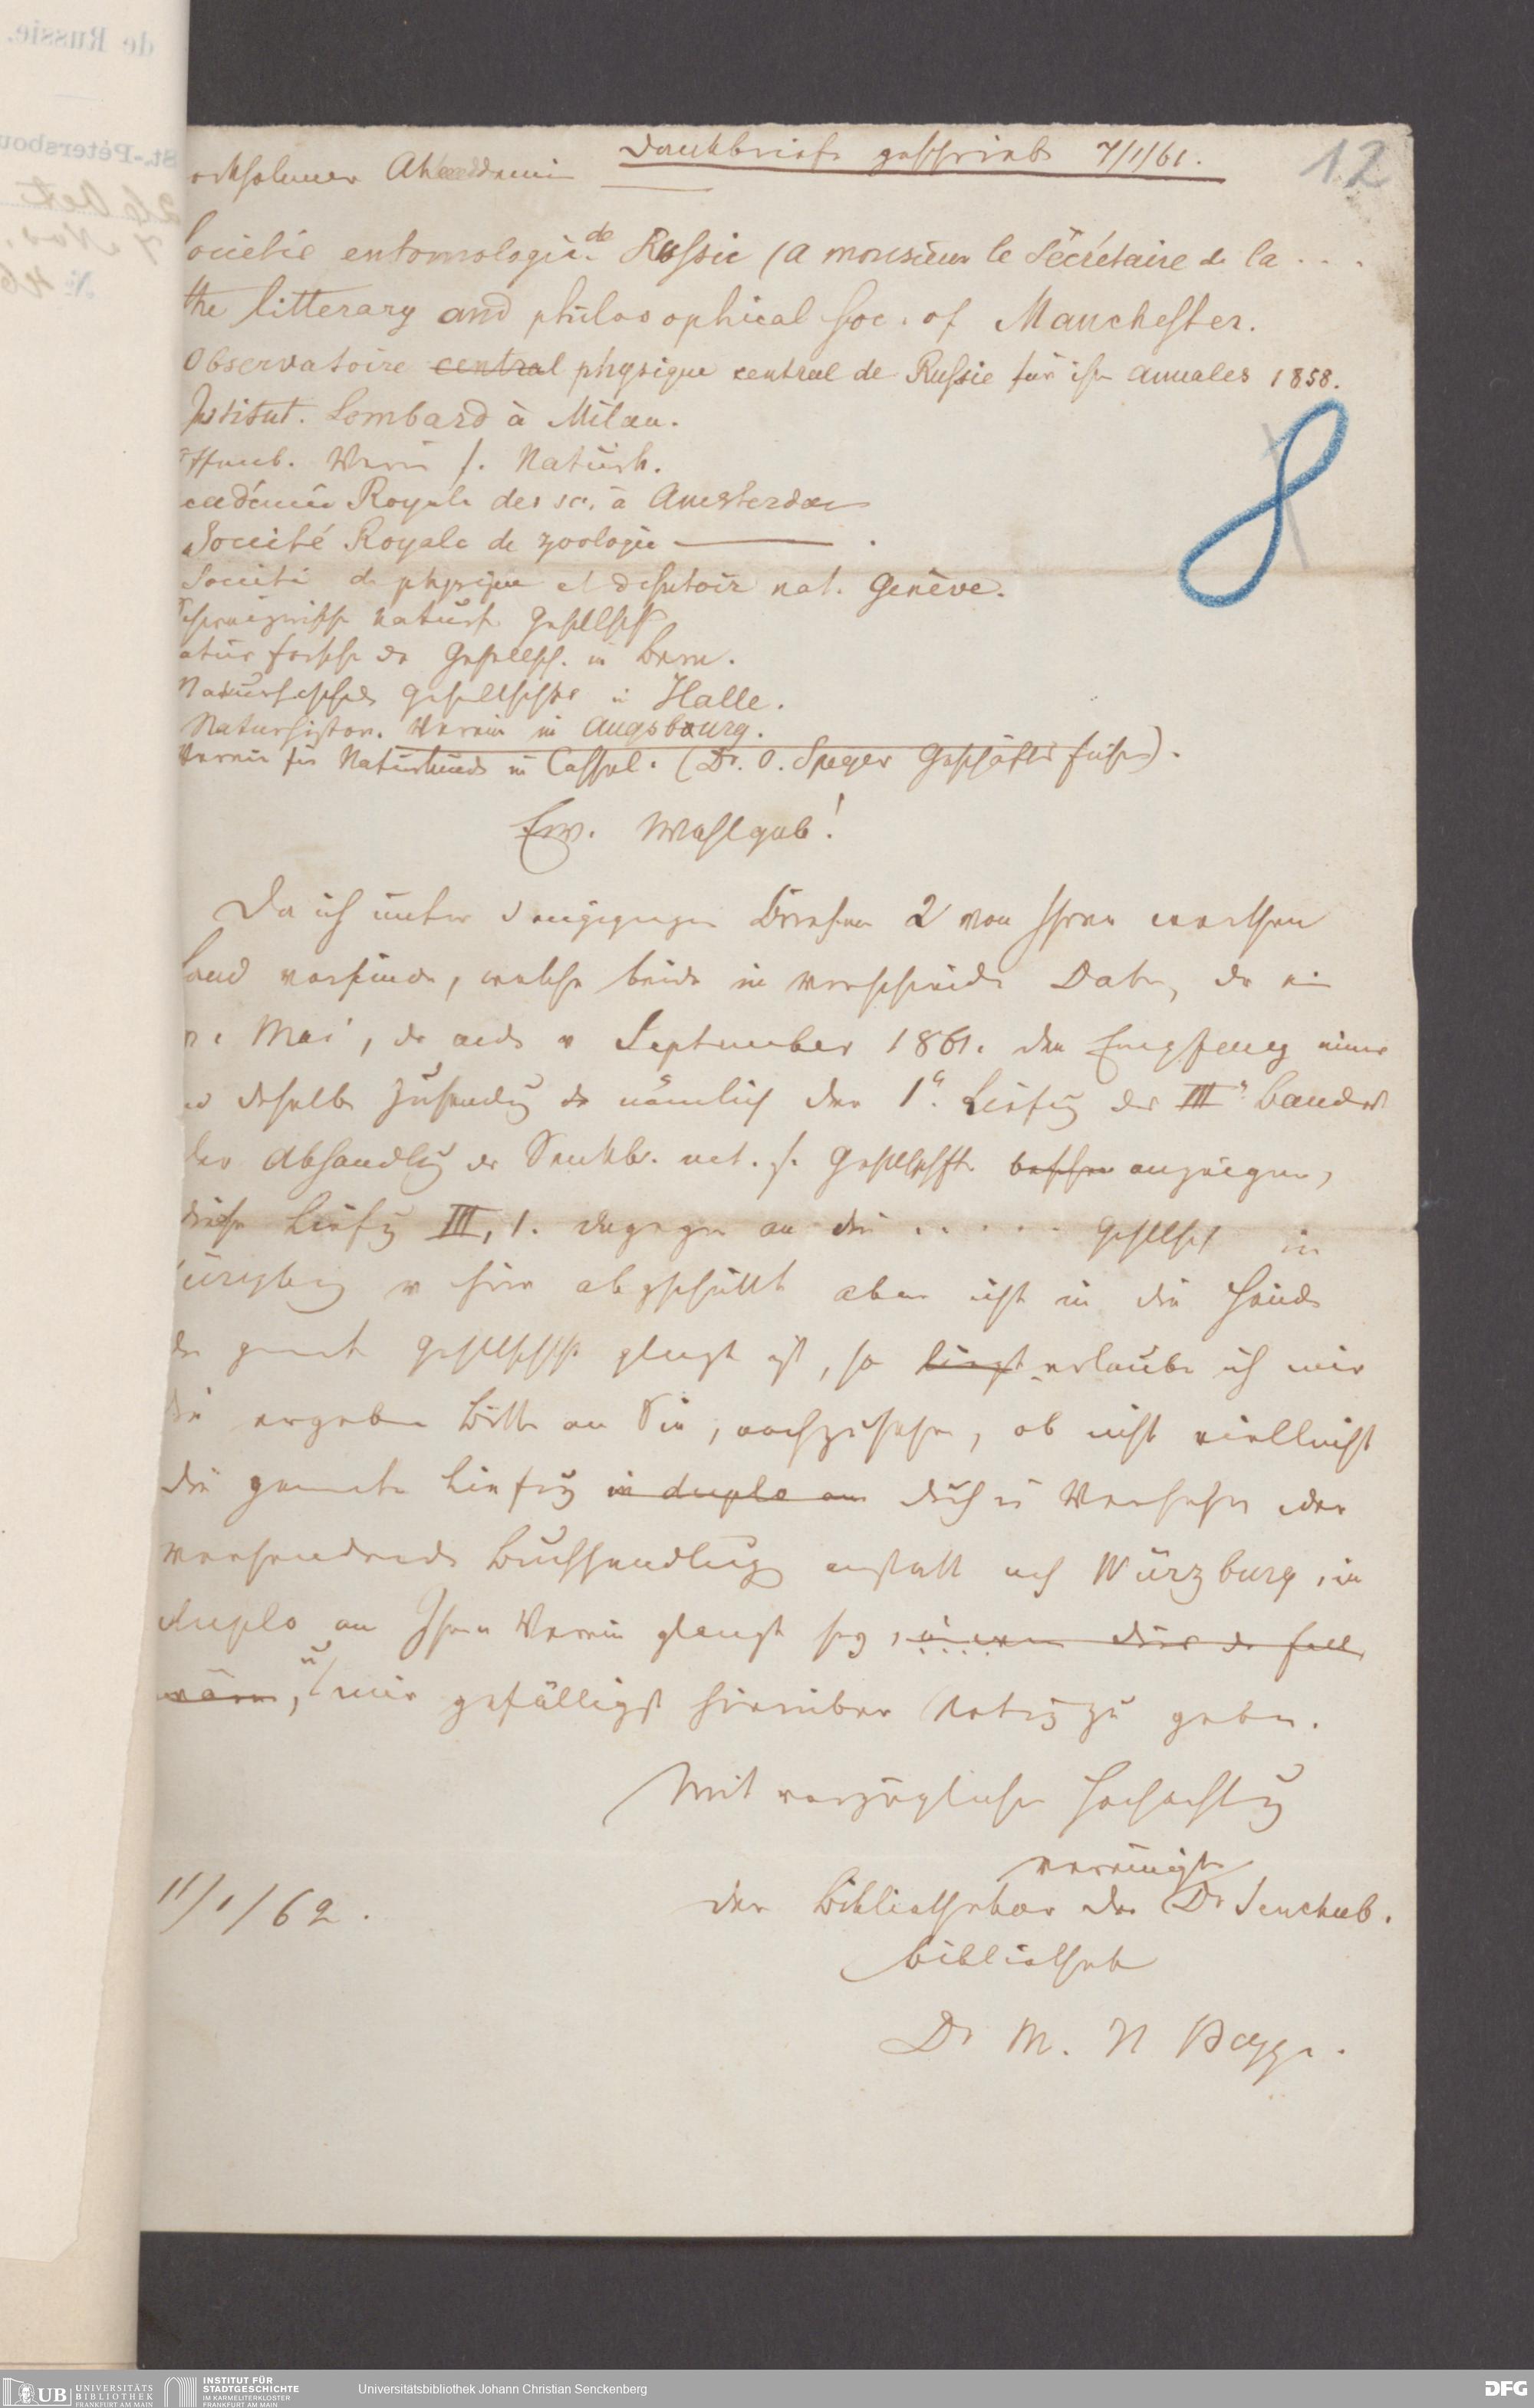 Dankbriefe geschrieben 7/1/61.
12
ockholmer Akademie
Societie entomologic. de Russie (a monsieur le Sécrétaire de la . . .
the litterary and philosophical Soc. of Manchester.
Observatoire central physique central de Russie für ihre annales 1858.
Institut. Lombard à Milan.
Offenb. Verein f. Naturk.
cadémie Royale des sc. à Amsterdam
Société Royale de zoologie ——— .
Société de physique et d'histoir nat. Genève.
Schweizerische naturf. Gesellsch
atur forschende Gesellsch. in Bern.
Naturforschende Gesellschaft in Halle.
Naturhistor. Verein in Augsbourg.
Verein für Naturkunde in Cassel. (Dr. O. Speyer Geschäftsführer).
8
Ew. Wohlgeb!
Da ich unter d eingegangen Briefen 2 von Ihrer werthen
Hand vorfinde, welche beide in verschieden Daten, der ein
v. Mai, der and v September 1861. den Empfang einer
u derselben Zusendung der nämlich der 1n. Liefg des IIIn Bandes
der Abhandlg der Senkb. nat. f. Gesellschft anzeigen,
diese Liefg III, 1. dagegen an die . . . . . Gesellsch in
Würzburg v hier abgeschickt aber nicht in die Hände
der genannt Gesellschft gelangt ist, so liegt erlaube ich mir
die ergeben Bitte an Sie, nachzusehen, ob nicht vielleicht
die genannte Liefrg in duplo an durch ein Versehen der
versendenden Buchhandlung anstatt nach Würzburg, in
duplo an Ihren Verein gelangt sey, dies der Fall
wäre, u mir gefälligst hierüber Notiz zu geben.
Mit vorzüglicher Hochachtung
11/1/62.
der Bibliothekar der vereinigten Dr Senckenb.
Bibliothek
Dr M.
de Russie.
St.-Pétersbou
26 Oct
7 Nov.
№ 46
UB UNIVERSITÄTS BIBLIOTHEK FRANKFURT AM MAIN
INSTITUT FÜR STADTGESCHICHTE IM KARMELITERKLOSTER FRANKFURT AM MAIN
Universitätsbibliothek Johann Christian Senckenberg
DFG